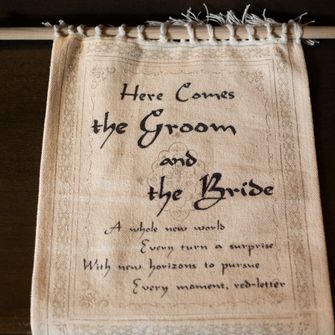 Here Comes
the Groom
and
the Bride
A whole new world
Every turn a surprise
With new horizons to pursue
Every moment, red-letter